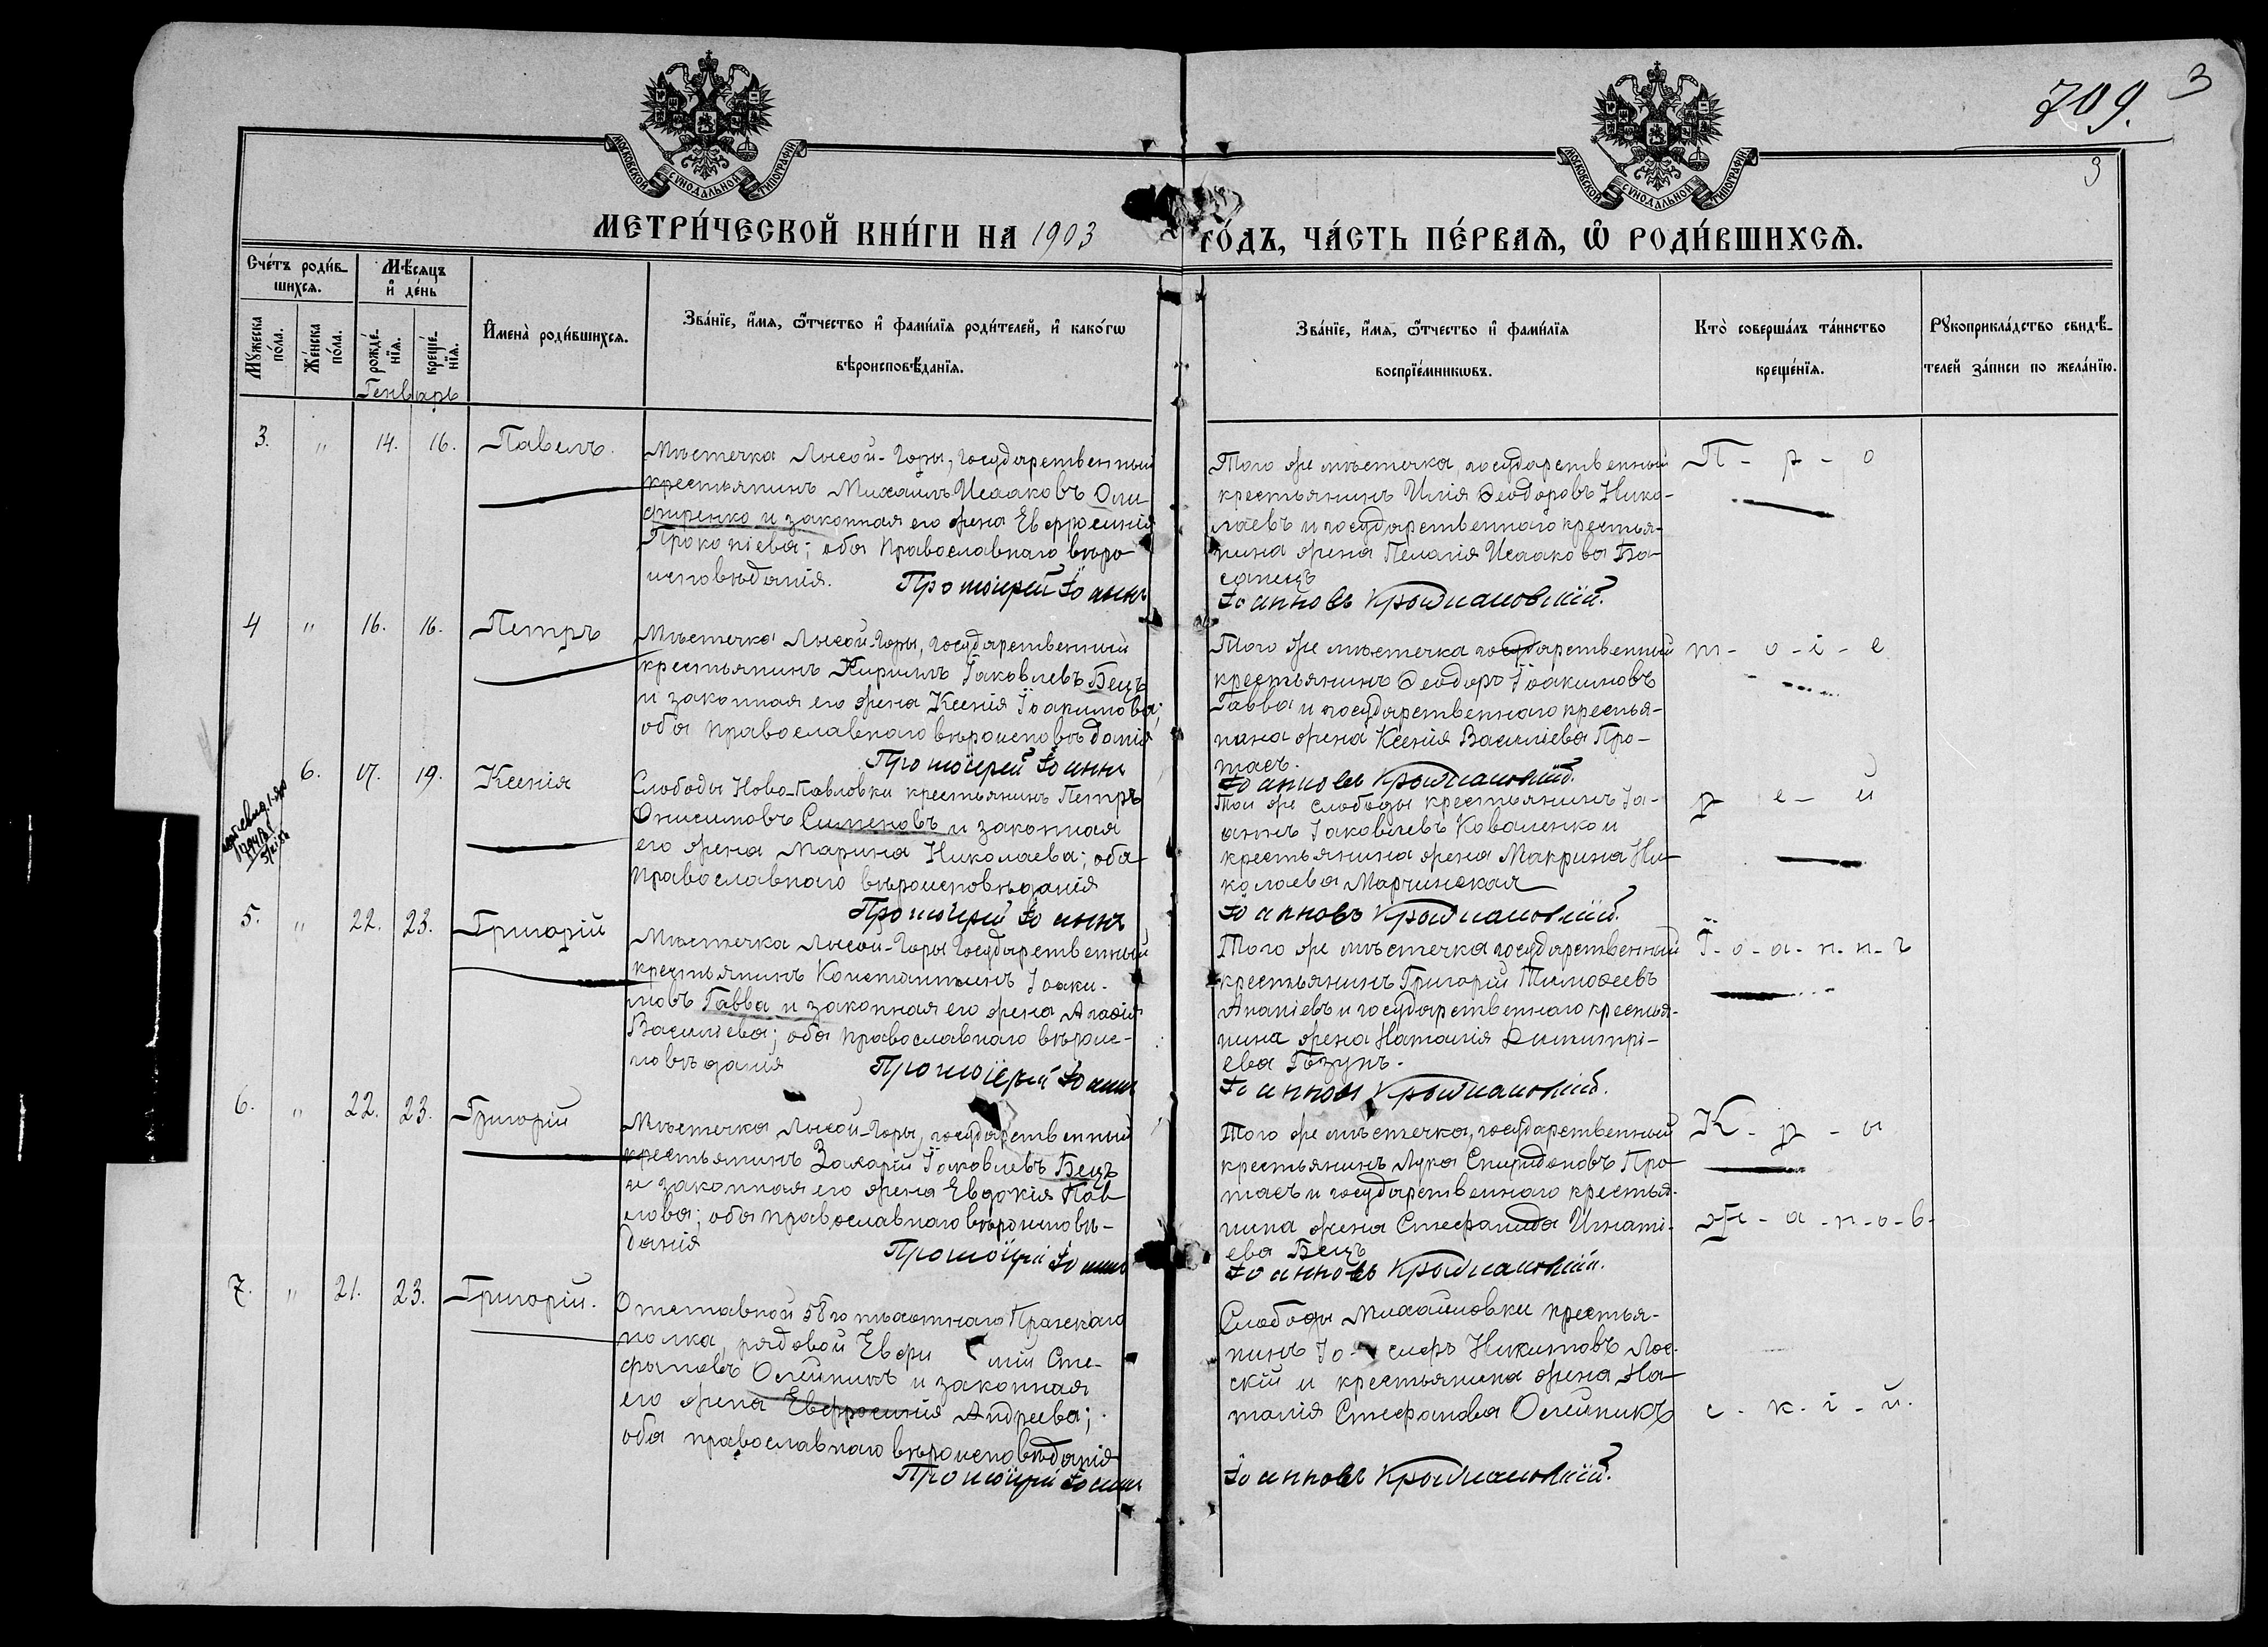 709. 3
3
МОСКОВСКОЙ СѴНОДАЛЬНОЙ ТИПОГРАФІИ
МОСКОВСКОЙ СѴНОДАЛЬНОЙ ТИПОГРАФІИ
МЕТРИ́ЧЕСКОЙ КНИ́ГИ НА 1903 ГО́ДЪ, ЧА́СТЬ ПЕ́РВАѦ, Ѡ҆ РОДИ́ВШИХСѦ.
Сче́тъ роди́в-
шихсѧ.
Мꙋ́жеска
по́ла.
Же́нска
по́ла.
Мѣ́сѧцъ
и҆ де́нь
рожде́-
нїѧ.
креще́-
нїѧ.
Генварь
И҆мена̀ роди́вшихсѧ.
Зва́нїе, и҆́мѧ, ѻ҆́тчество и҆ фами́лїѧ роди́телей, и҆ како́гѡ
вѣроисповѣ́данїѧ.
Зва́нїе, и҆́мѧ, ѻ҆́тчество и҆ фами́лїѧ
воспрїе́мникѡвъ.
Кто̀ соверша́лъ та́инство
креще́нїѧ.
Рꙋкоприкла́дство свидѣ́-
телей за́писи по жела́нїю.
3. " 14. 16. Павелъ.
Мѣстечка Лысой-Горы, государственный
крестьянинъ Михаилъ Исааковъ Оли-
фиренко и законная его жена Евфросинія
Прокопіева; оба православнаго вѣро-
исповѣданія.
Протоіерей Іоаннъ
Того же мѣстечка, государственный
крестьянинъ Илія Ѳеодоровъ Нико-
лаевъ и государственнаго крестья-
нина жена Пелагія Исаакова Ба-
санецъ
Іоанновъ Крыжановскій.
П - р - о
4 " 16. 16. Петръ
Мѣстечка Лысой-Горы, государственный
крестьянинъ Кириллъ Іаковлевъ Бецъ
и законная его жена Ксенія Іоакимова;
оба православнаго вѣроисповѣданія
Протоіерей Іоаннъ
Того же мѣстечка государственный
крестьянинъ Ѳеодоръ Іоакимовъ
Гавва и государственнаго крестья-
нина жена Ксенія Василіева Про-
тасъ.
Іоанновъ Крыжановскій.
т - о - і - е
6. 17. 19. Ксенія
Слободы Ново-Павловки крестьянинъ Петръ
Онисимовъ Сименовъ и законная
его жена Марина Николаева; оба
православнаго вѣроисповѣданія
Протоіерей Іоаннъ
Той же слободы крестьянинъ Іо-
аннъ Іаковлевъ Коваленко и
крестьянина жена Макрина Ни-
колаева Марчинская
Іоанновъ Крыжановскій.
р е - й
5. " 22. 23. Григорій
Мѣстечка Лысой-Горы Государственный
крестьянинъ Константинъ Іоаки-
мовъ Гавва и законная его жена Агаѳія
Василіева; оба православнаго вѣроис-
повѣданія
Протоіерей Іоаннъ
Того же мѣстечка государственный
крестьянинъ Григорій Тимоѳеевъ
Ананіевъ и государственнаго крестья-
нина жена Наталія Димитрі-
ева Гозунъ.
Іоанновъ Крыжановскій.
І - о - а - н - н - ъ
6. " 22. 23. Григорій
Мѣстечка Лысой-Горы, государственный
крестьянинъ Захарій Іаковлевъ Бецъ
и законная его жена Евдокія Пав-
лова; оба православнаго вѣроисповѣ-
данія
Протоіерей Іоаннъ
Того же мѣстечка, государственный
крестьянинъ Лука Спиридоновъ Про-
тасъ и государственнаго крестья-
нина жена Стефанида Игнаті-
ева Бецъ
Іоанновъ Крыжановскій.
К - р - ы
ж - а - н - о - в -
7. " 21. 23. Григорій.
Отставной 58го пѣхотнаго Пражскаго
полка, рядовой Евфи мій Сте-
фановъ Олейникъ и законная
его жена Евфросинія Андреева;
оба православнаго вѣроисповѣданія
Протоіерей Іоаннъ
Слободы Михайловки крестья-
нинъ Іо- сифъ Никитовъ Лос-
скій и крестьянина жена На-
талія Стефанова Олейникъ
Іоанновъ Крыжановскій.
с - к - і - й.